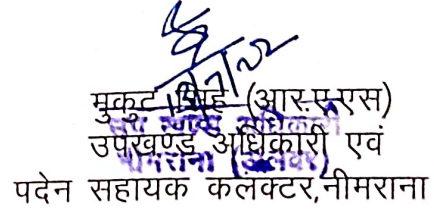 मुकुट सिंह (आर.ए.एस)
उपखण्ड अधिकारी एवं
पदेन सहायक कलेक्टर,नीमराना